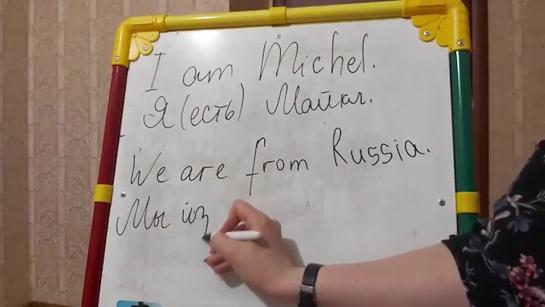 I am Michel.
Я (есть) Майкл.
We are from Russia.
Мы из